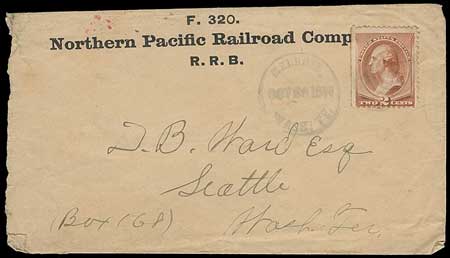 F. 320.
Northern Pacific Railroad Comp
R. R. B.
UNITED STATES POSTAGE
TWO 2 CENTS
D. B. Ward Esq
Seattle
(Box 168)
Wash. Ter.